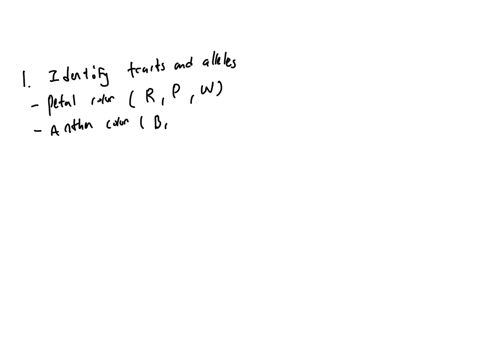 1. Identify traits and alleles
- Petal color ( R, P, W)
- Anther color ( B,